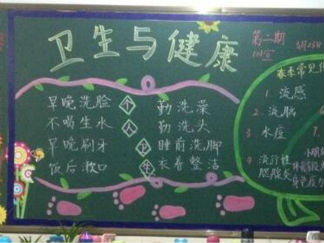 卫生与健康
第二期
早晚洗脸 个 勤洗澡
不喝生水 人 勤洗头
早晚刷牙 卫 睡前洗脚
饭后漱口 生 衣着整洁
春季常见
1. 流感
2. 流脑
3. 水痘
4. 流行性
腮腺炎
7.